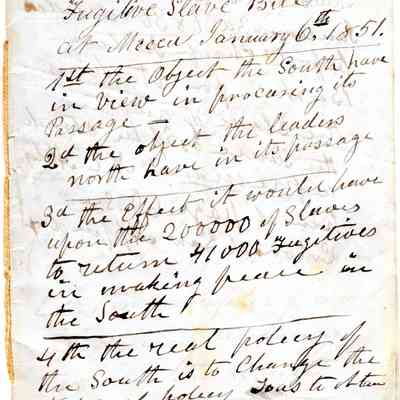 Fugitive Slave Bill
at Mecca January 6th 1851.
1st the Object the South have
in View in procuring its
Passage
2d the object the leaders
north have in its passage
3d the Effect it would have
upon the 200000 of Slaves
to return 41000 Fugitives
in making peace in
the South
4th the real policy of
the South is to Change the
policy